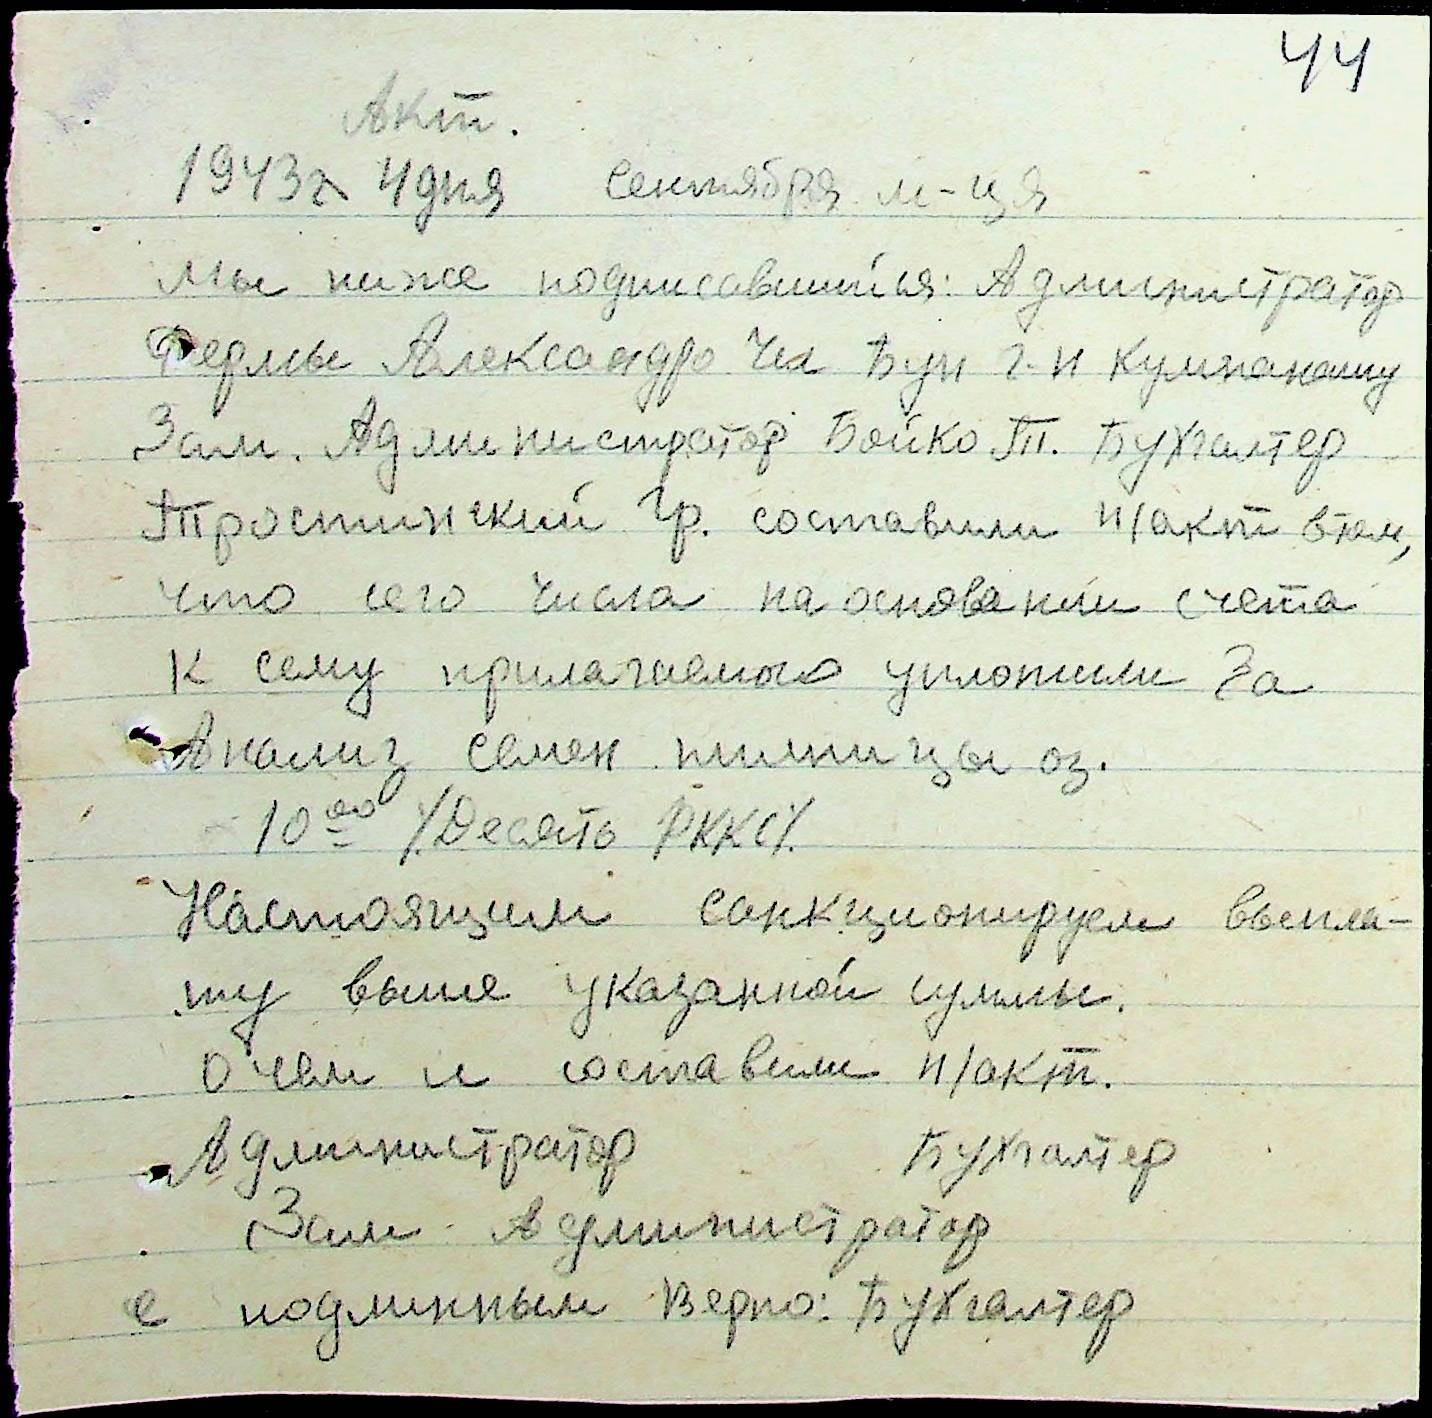 44
Акт.
1943г 4 дня сентября м-ця
Мы ниже подписавшийся: Администратор
Фермы Александро Чел Бун г-н Кумпанашу
Зам. Администратор Бойко Т. Бухгалтер
Тростинский Гр. составили н/акт втом,
что сего числа на основании счета
к сему прилагаемого уплотили за
Анализ семен пшиницы оз.
10 00 /Десять РККС/.
Настоящим санкционируем выпла-
ту выше указанной суммы.
О чем и составили н/акт.
Администратор Бухгалтер
Зам Администратор
с подлинным верно: Бухгалтер